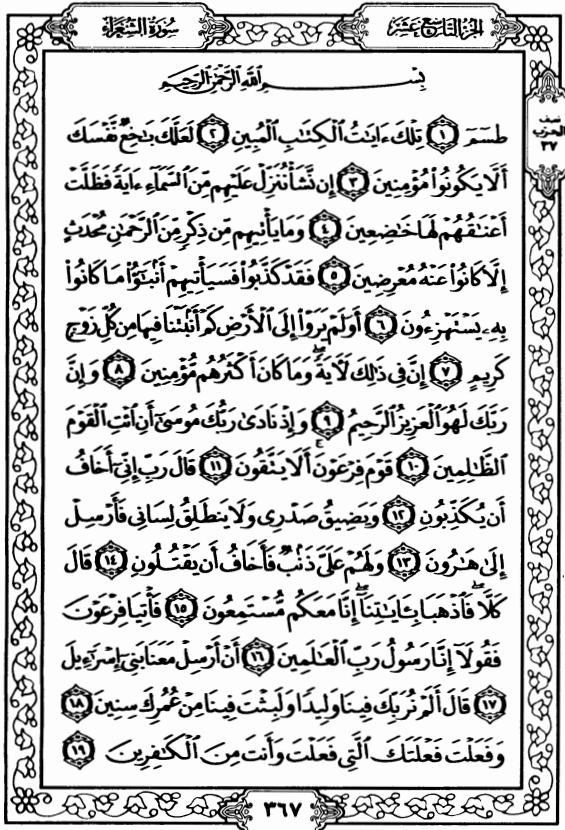 سُورَةُ الشُّعَرَاءِ
الجُزْءُ التَّاسِعَ عَشَرَ
نصف
الحزب
٣٧
بِسْمِ ٱللَّهِ ٱلرَّحْمَٰنِ ٱلرَّحِيمِ
طسٓمٓ ۝١ تِلْكَ ءَايَٰتُ ٱلْكِتَٰبِ ٱلْمُبِينِ ۝٢ لَعَلَّكَ بَٰخِعٌ نَّفْسَكَ
أَلَّا يَكُونُوا۟ مُؤْمِنِينَ ۝٣ إِن نَّشَأْ نُنَزِّلْ عَلَيْهِم مِّنَ ٱلسَّمَآءِ ءَايَةً فَظَلَّتْ
أَعْنَٰقُهُمْ لَهَا خَٰضِعِينَ ۝٤ وَمَا يَأْتِيهِم مِّن ذِكْرٍ مِّنَ ٱلرَّحْمَٰنِ مُحْدَثٍ
إِلَّا كَانُوا۟ عَنْهُ مُعْرِضِينَ ۝٥ فَقَدْ كَذَّبُوا۟ فَسَيَأْتِيهِمْ أَنۢبَٰٓؤُا۟ مَا كَانُوا۟
بِهِۦ يَسْتَهْزِءُونَ ۝٦ أَوَلَمْ يَرَوْا۟ إِلَى ٱلْأَرْضِ كَمْ أَنۢبَتْنَا فِيهَا مِن كُلِّ زَوْجٍ
كَرِيمٍ ۝٧ إِنَّ فِى ذَٰلِكَ لَءَايَةً ۖ وَمَا كَانَ أَكْثَرُهُم مُّؤْمِنِينَ ۝٨ وَإِنَّ
رَبَّكَ لَهُوَ ٱلْعَزِيزُ ٱلرَّحِيمُ ۝٩ وَإِذْ نَادَىٰ رَبُّكَ مُوسَىٰٓ أَنِ ٱئْتِ ٱلْقَوْمَ
ٱلظَّٰلِمِينَ ۝١٠ قَوْمَ فِرْعَوْنَ ۚ أَلَا يَتَّقُونَ ۝١١ قَالَ رَبِّ إِنِّىٓ أَخَافُ
أَن يُكَذِّبُونِ ۝١٢ وَيَضِيقُ صَدْرِى وَلَا يَنطَلِقُ لِسَانِى فَأَرْسِلْ
إِلَىٰ هَٰرُونَ ۝١٣ وَلَهُمْ عَلَىَّ ذَنۢبٌ فَأَخَافُ أَن يَقْتُلُونِ ۝١٤ قَالَ
كَلَّا ۖ فَٱذْهَبَا بِـَٔايَٰتِنَآ ۖ إِنَّا مَعَكُم مُّسْتَمِعُونَ ۝١٥ فَأْتِيَا فِرْعَوْنَ
فَقُولَآ إِنَّا رَسُولُ رَبِّ ٱلْعَٰلَمِينَ ۝١٦ أَنْ أَرْسِلْ مَعَنَا بَنِىٓ إِسْرَٰٓءِيلَ
۝١٧ قَالَ أَلَمْ نُرَبِّكَ فِينَا وَلِيدًا وَلَبِثْتَ فِينَا مِنْ عُمُرِكَ سِنِينَ ۝١٨
وَفَعَلْتَ فَعْلَتَكَ ٱلَّتِى فَعَلْتَ وَأَنتَ مِنَ ٱلْكَٰفِرِينَ ۝١٩
٣٦٧